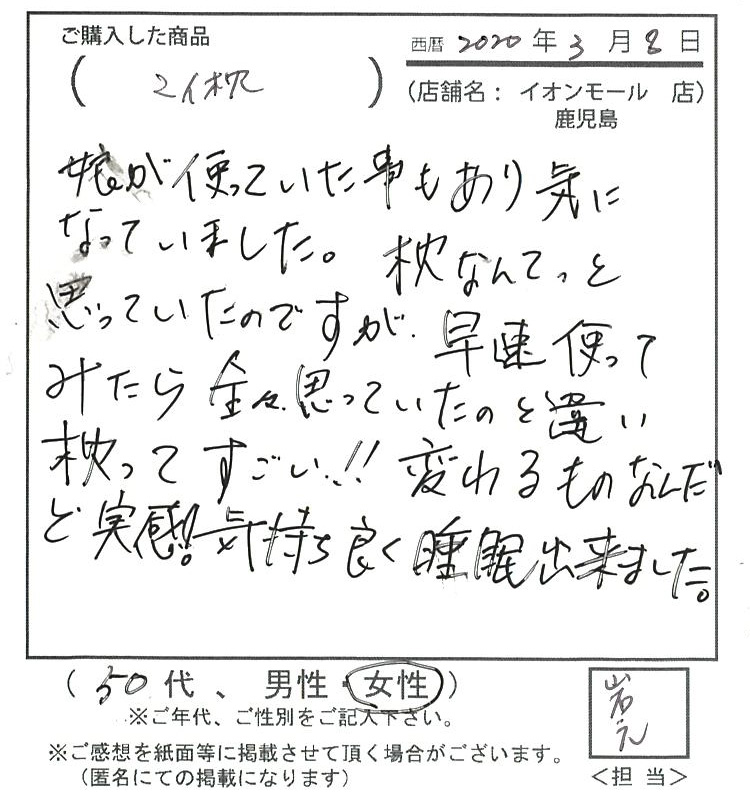 ご購入した商品
西暦 2020 年 3 月 8 日
( 2イ枕 )
(店舗名： イオンモール 店)
鹿児島
娘が使っていた事もあり気に
なっていました。枕なんてっと
思っていたのですが、早速使って
みたら全々思っていたのと違い
枕ってすごい!! 変れるものなんだ
と実感!気持ち良く睡眠出来ました。
( 50 代 、 男性・女性 )
※ご年代、ご性別をご記入下さい。
※ご感想を紙面等に掲載させて頂く場合がございます。
(匿名にての掲載になります)
岩元
＜担 当＞